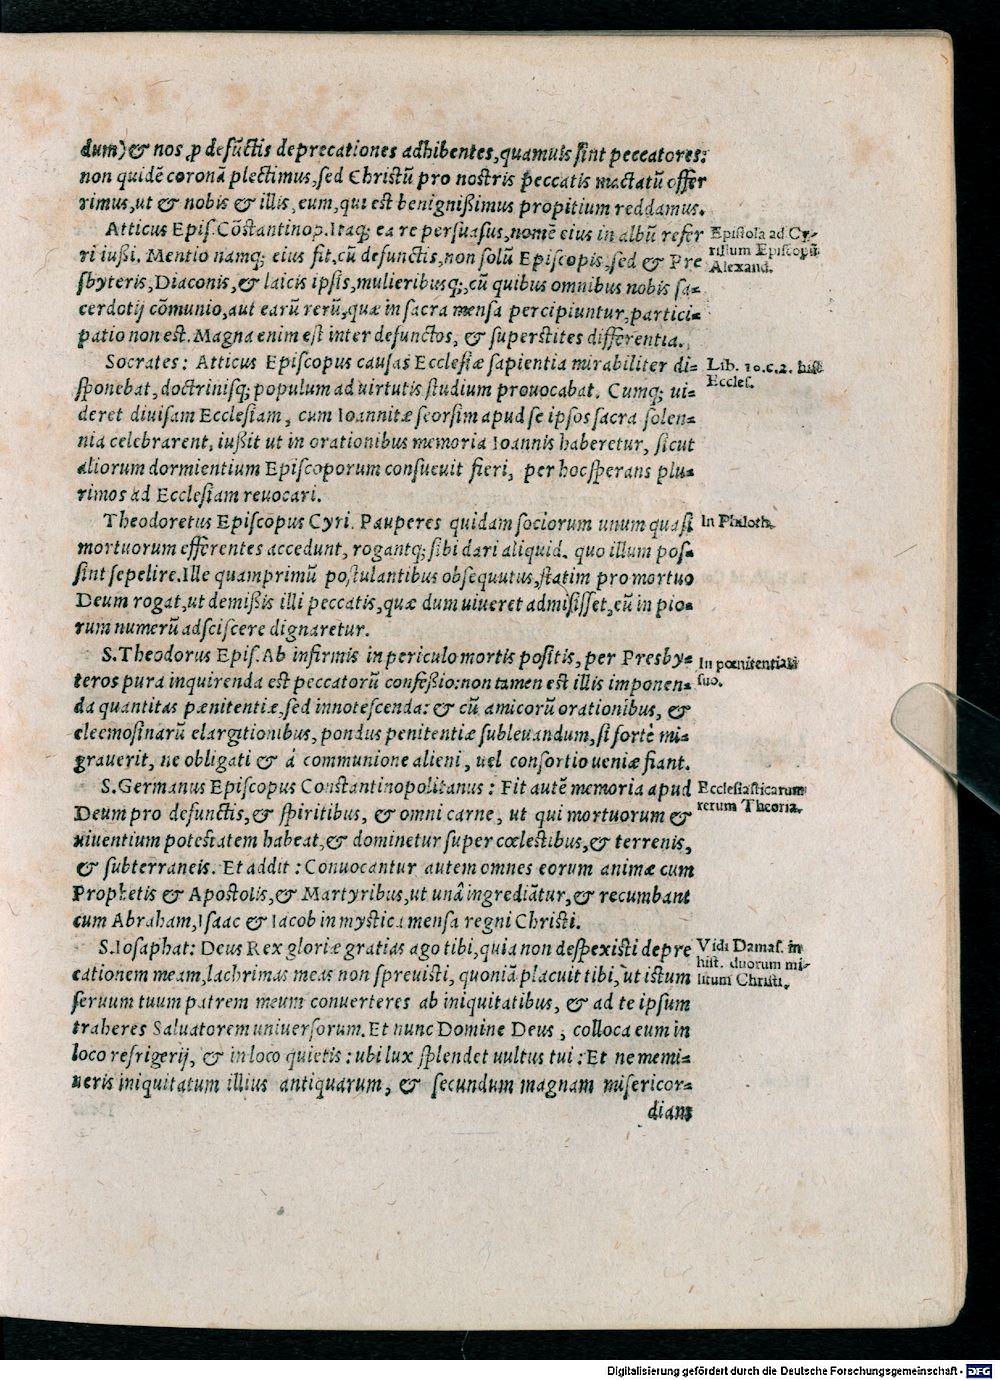 dum) & nos ꝓ defūctis deprecationes adhibentes, quamuis sint peccatores:
non quidē coronā plectimus, sed Christū pro nostris peccatis mactatū offer
rimus, ut & nobis & illis, eum, qui est benignißimus propitium reddamus.
Atticus Epis. Cōstantinop. Itaq; ea re persuasus, nomē eius in albū refer
ri iußi. Mentio namq; eius fit, cū defunctis, non solū Episcopis, sed & Pre
sbyteris, Diaconis, & laicis ipsis, mulieribusq;, cū quibus omnibus nobis sa=
cerdotij cōmunio, aut earū rerū, quæ in sacra mensa percipiuntur, partici=
patio non est. Magna enim est inter defunctos, & superstites differentia.
Epistola ad Cy-
rillum Episcopū
Alexand.
Socrates: Atticus Episcopus causas Ecclesiæ sapientia mirabiliter di=
sponebat, doctrinisq; populum ad uirtutis studium prouocabat. Cumq; ui=
deret diuisam Ecclesiam, cum Ioannitæ seorsim apud se ipsos sacra solen=
nia celebrarent, iußit ut in orationibus memoria Ioannis haberetur, sicut
aliorum dormientium Episcoporum consueuit fieri, per hoc sperans plu=
rimos ad Ecclesiam reuocari.
Lib. 10. c. 2. hist
Eccles.
Theodoretus Episcopus Cyri. Pauperes quidam sociorum unum quasi
mortuorum efferentes accedunt, rogantq; sibi dari aliquid. quo illum pos=
sint sepelire. Ille quamprimū postulantibus obsequutus, statim pro mortuo
Deum rogat, ut demißis illi peccatis, quæ dum uiueret admisisset, eū in pio=
rum numerū adsciscere dignaretur.
In Philoth.
S. Theodorus Epis. Ab infirmis in periculo mortis positis, per Presby=
teros pura inquirenda est peccatorū confeßio: non tamen est illis imponen=
da quantitas pænitentiæ, sed innotescenda: & cū amicorū orationibus, &
eleemosinarū elargitionibus, pondus penitentiæ subleuandum, si fortè mi=
grauerit, ne obligati & á communione alieni, uel consortio ueniæ fiant.
In pœnitentiali
suo.
S. Germanus Episcopus Constantinopolitanus: Fit autē memoria apud
Deum pro defunctis, & spiritibus, & omni carne, ut qui mortuorum &
uiuentium potestatem habeat, & dominetur super cœlestibus, & terrenis,
& subterraneis. Et addit: Conuocantur autem omnes eorum animæ cum
Prophetis & Apostolis, & Martyribus, ut unâ ingrediātur, & recumbant
cum Abraham, Isaac & Iacob in mystica mensa regni Christi.
Ecclesiasticarum
rerum Theoria.
S. Iosaphat: Deus Rex gloriæ gratias ago tibi, quia non despexisti depre
cationem meam, lachrimas meas non spreuisti, quoniā placuit tibi, ut istum
seruum tuum patrem meum conuerteres ab iniquitatibus, & ad te ipsum
traheres Saluatorem uniuersorum. Et nunc Domine Deus, colloca eum in
loco refrigerij, & in loco quietis: ubi lux splendet uultus tui: Et ne memi=
neris iniquitatum illius antiquarum, & secundum magnam misericor=
diam
Vidi Damas. in
hist. duorum mi-
litum Christi.
Digitalisierung gefördert durch die Deutsche Forschungsgemeinschaft - DFG